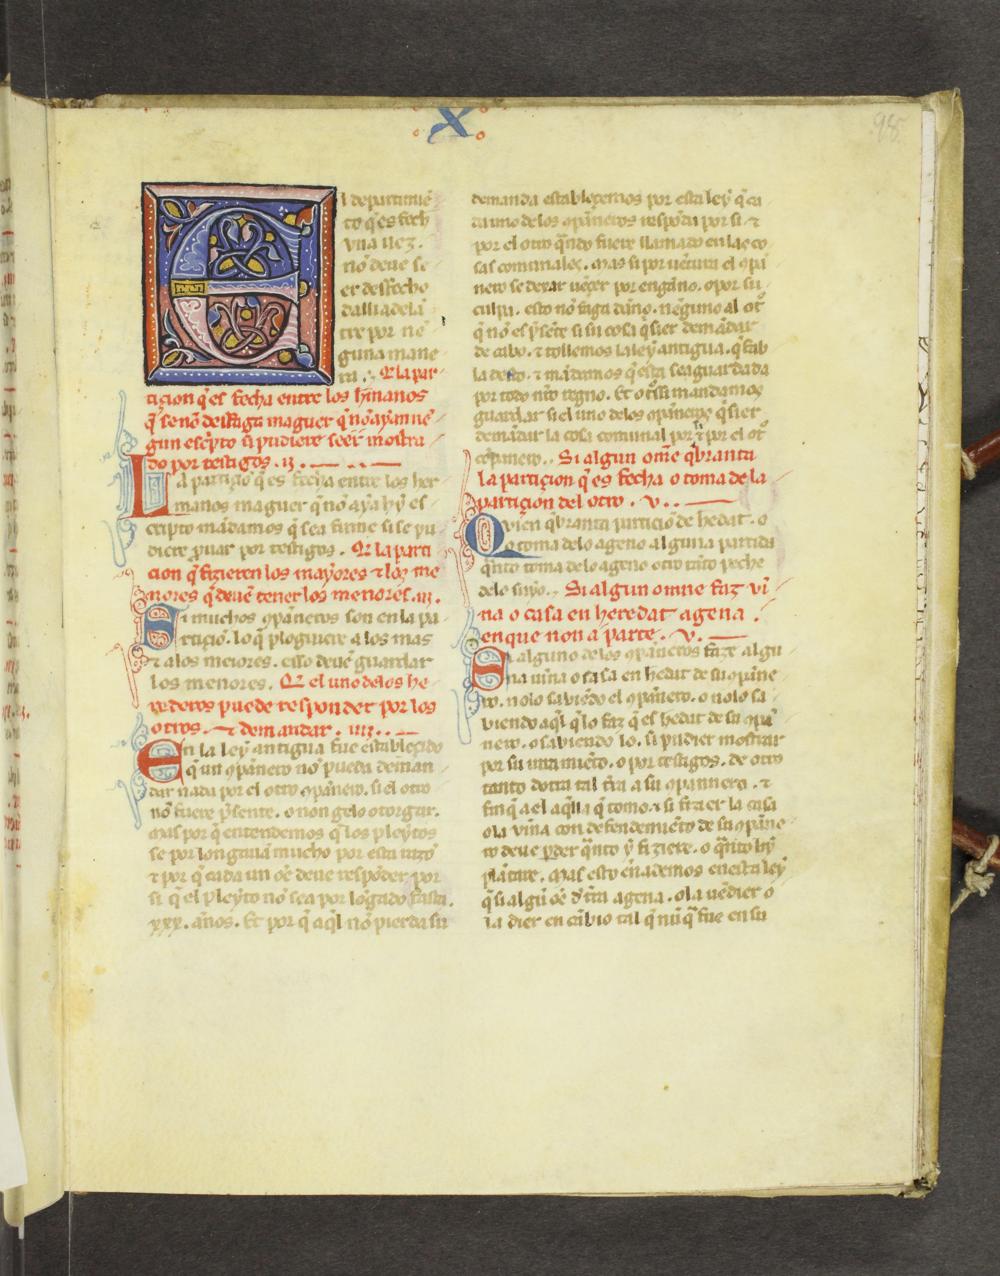 X
98
El departimiē
to q̄ es fech
vna uez.
nō deue se
er desfecho
dalli adelā
tre por nē
guna mane
ra. Q̄ la par
tiçion q̄ es fecha entre los h̄manos
q̄ se nō desfaga maguer q̄ nō ayan ne
gun escp̄to si pudiere seer mostra
do por testigos. ij.
La partiçiō q̄ es fecha entre los her
manos maguer q̄ nō aya hy es
cripto mādamos q̄ sea firme si se pu
diere p̄uar por testigos. Q̄ la parti
cion q̄ fizieren los mayores ⁊ los me
nores q̄ deuē tener los menores. iij.
Si muchos ꝯpāneros son en la pa
rtiçiō. lo q̄ plogiuere a los mas
⁊ a los meiores. esso deuē guardar
los menores. Q̄ el uno de los he
rederos puede responder por los
otros. ⁊ demandar. iiij.
En la ley antigua fue establesçido
q̄ un ꝯpānero nō pueda deman
dar nada por el otro ꝯpānero. si el otro
nō fuere p̄sente. o non gelo otorgar.
mas por q̄ entendemos q̄ los pleytos
se por longauā mucho por esta razō
⁊ por q̄ cada un oē deue respōder por
si. q̄ el pleyto nō sea por lōgado fasta.
xxx. años. Et por q̄ aq̄l nō pierda su
demanda establesçemos por esta ley q̄ ca
da uno de los ꝯpāneros respōda por si. ⁊
por el otro q̄ndo fuere llamado en las co
sas comunales. mas si por uētura el ꝯpā
nero se dexar uēçer por engāno. o por su
culpa. esto nō faga dāno. neguno al ot̄
q̄ nō es p̄sēte si su cosa q̄sier demādar
de cabo. ⁊ tollemos la ley antigua. q̄ fab
la desto. ⁊ mādamos q̄ esta sea guardada
por todo nr̄o regno. Et otrossi mandamos
guardar si el uno de los ꝯpāneros q̄sier
demādar la cosa comunal por si ⁊ por el ot̄
cōpanero. Si algun ome q̄branta
la partiçion q̄ es fecha o toma de la
partiçion del otro. v.
Qvien q̄branta partiçiō de hedat. o
o toma de lo ageno alguna partida
q̄nto toma de lo ageno otro tāto peche
de lo suyo. Si algun omne faz vi
na o casa en heredat agena.
en que non a parte. v.
Si alguno de los ꝯpāneros faze algu
na uina o casa en hedat de su ꝯpāne
ro. nolo sabiēdo el ꝯpānero. o nolo sa
biendo aq̄l q̄ lo faz q̄ es hedat de su ꝯpā
nero. o sabiendo lo. si pudier mostrar
por su iuramēto. o por testigos. de otro
tanto dotra tal t̄ra a su ꝯpannero. ⁊
finq̄ a el aq̄lla q̄ tomo. ⁊ si fizier la casa
o la vina con defendemiēto de su ꝯpāne
ro deue p̄der q̄nto y fiziere. o q̄nto hy
plātare. mas esto enademos en esta ley
q̄ si algū oē dˀ t̄ra agena. o la uēdier o
la dier en cābio tal q̄ nūq̄ fue en su